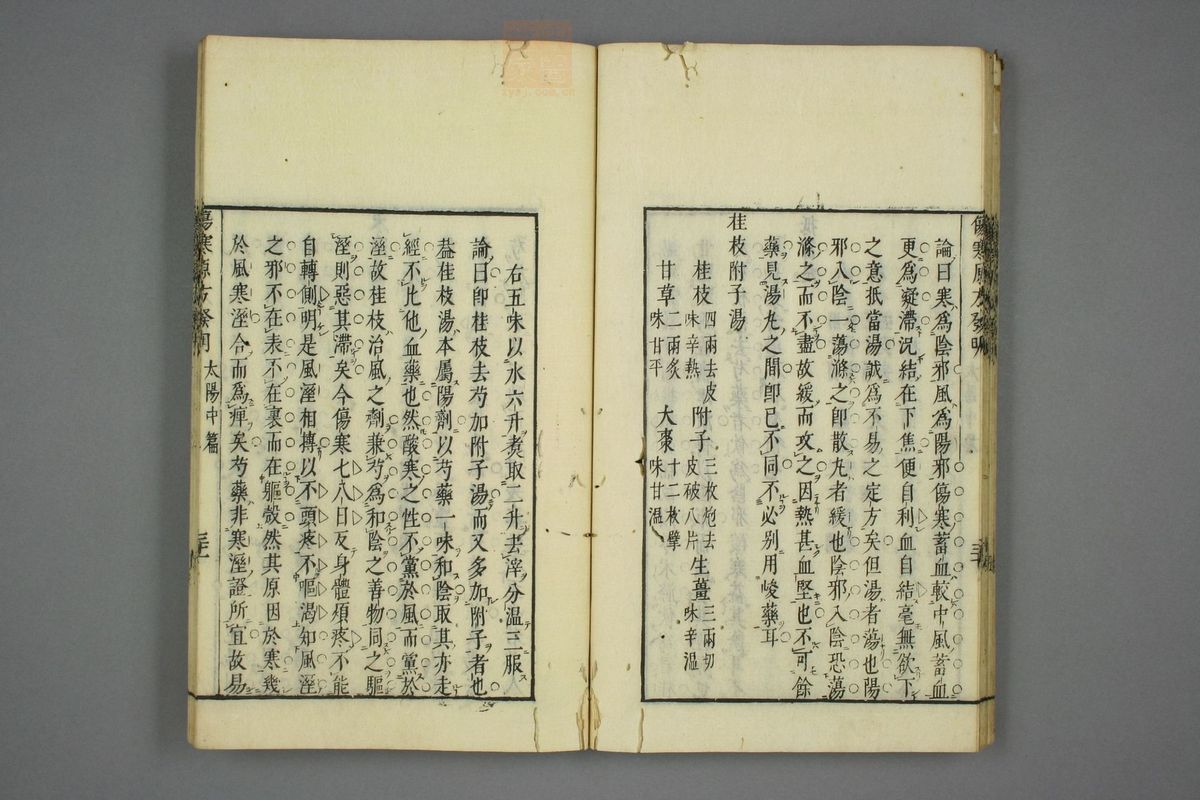 論曰寒爲陰邪風爲陽邪傷寒蓄血較中風蓄血
更爲凝滯況結在下焦便自利血自結毫無欲下
之意抵當湯誠爲不易之定方矣但湯者蕩也陽
邪入陰一蕩滌之卽散丸者緩也陰邪入陰恐蕩
滌之而不盡故緩而攻之因熱甚血堅也不可餘
藥見湯丸之間卽已不同不必別用峻藥耳
桂枝附子湯
桂枝四兩去皮味辛熱 附子三枚炮去皮破八片 生薑三兩切味辛溫
甘草二兩炙味甘平 大棗十二枚擘味甘溫
右五味以水六升煮取二升去滓分溫三服
論曰卽桂枝去芍加附子湯而又多加附子者也
益桂枝湯本屬陽劑以芍藥一味和陰取其亦走
經不比他血藥也然酸寒之性不黨於風而黨於
溼故桂枝治風之劑兼芍爲和陰之善物同之驅
溼則惡其滯矣今傷寒七八日反身體煩疼不能
自轉側明是風溼相摶以不頭疼不嘔渴知風溼
之邪不在表不在裏而在軀殼然其原因於寒幾
於風寒溼合而爲痺矣芍藥非寒溼證所宜故易
太陽中篇